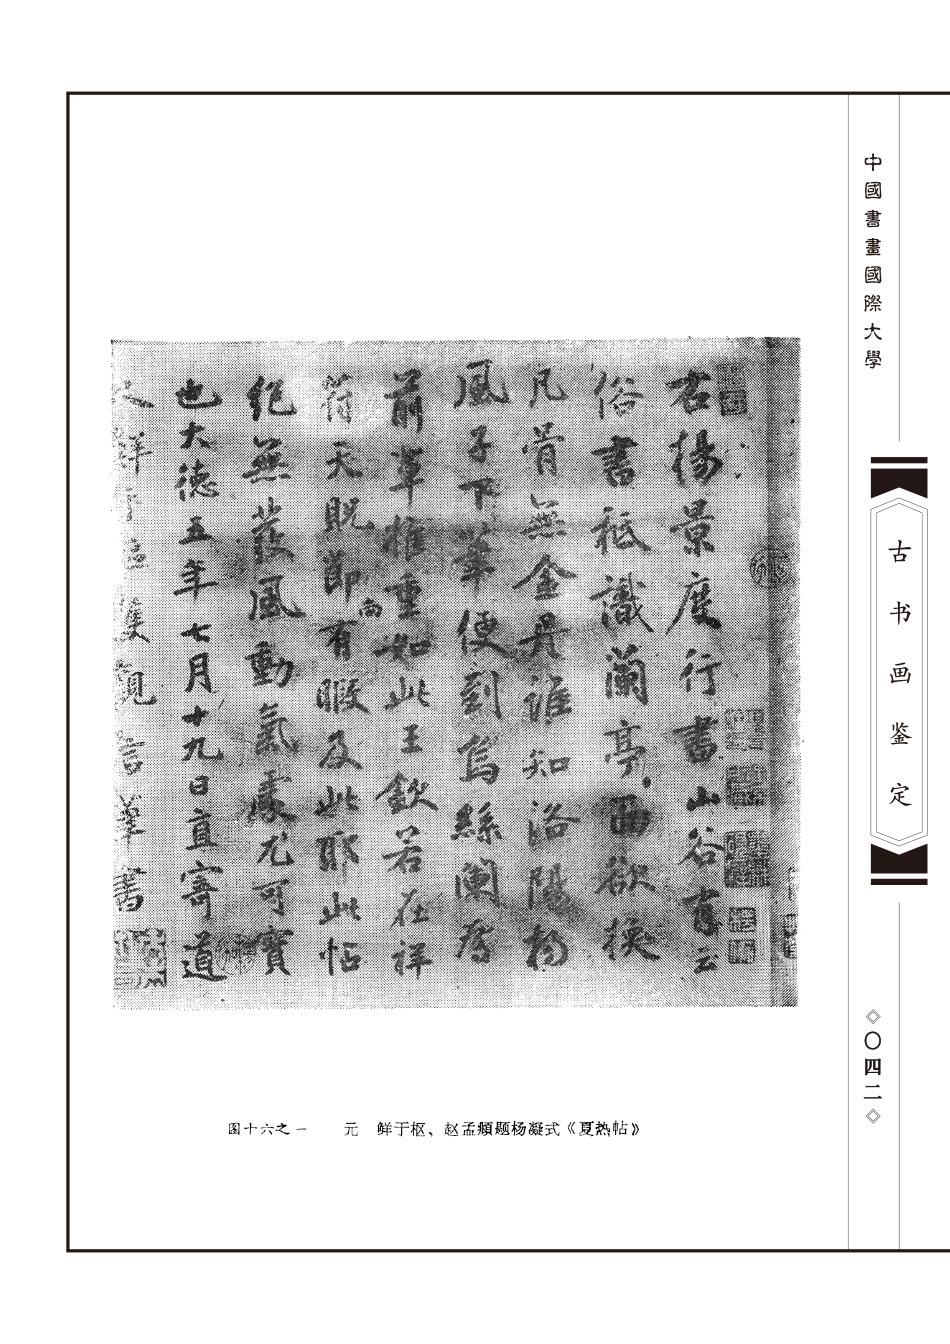 中國書畫國際大學
古书画鉴定
〇四二
右楊景度行書山谷有云
俗書祗識蘭亭面欲換
凡骨無金丹誰知洛陽楊
風子下筆便到烏絲闌
前輩推重如此王欽若在祥
符天貺節尚有暇及此耶此帖
絕無發風動氣處尤可寶
也大德五年七月十九日直寄道
人鮮于樞獲觀書
图十六之一 元 鲜于枢、赵孟頫题杨凝式《夏热帖》